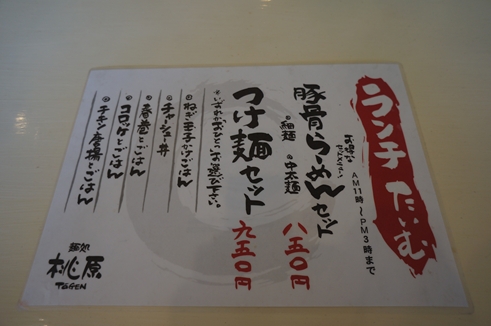 ランチたいむ
AM11時～PM3時まで
お得な
豚骨らーめんセット
●細麺 ●中太麺
八五〇円
つけ麺セット
九五〇円
いずれかおひとつお選び下さい。
●ねぎ玉子かけごはん
●チャーシュー丼
●春巻とごはん
●コロッケとごはん
●チキン唐揚とごはん
麺処
桃原
TŌGEN